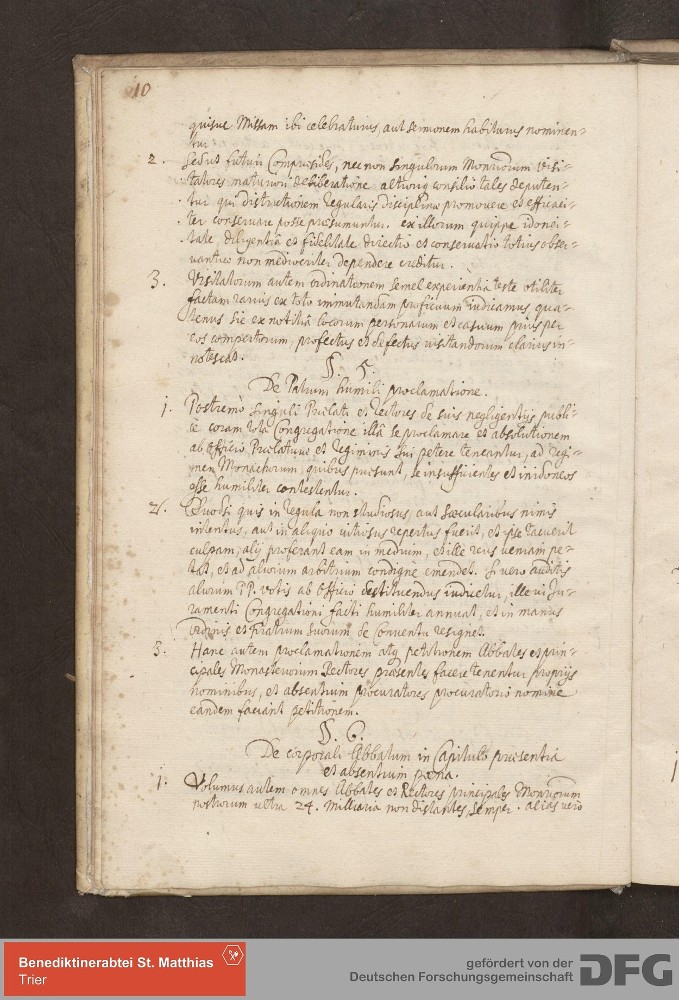 10
quisue Missam ibi celebraturus, aut sermonem habiturus nominen-
tur
2. Sed ut futuri Compraesides, nec non singulorum Monriorum Visi-
tatores maturiori deliberatione altioriq consilio tales deputen-
tur qui districtionem regularis disciplinae promovere et efficaci-
ter conservare posse praesumuntur. ex illorum quippe idonei-
tate, diligentiâ et fidelitate directio et conservatio totius obser-
vantiae non mediocriter dependere creditur.
3. Visitatorum autem ordinationem semel experientiâ teste utiliter
factam rarius ex toto immutandam proficuum iudicamus qua-
tenus sic ex notitiâ locorum personarum et casuum prius per
eos compertorum, profectus et defectus visitandorum clarius in-
notescat.
§. 5.
De Patrum humili proclamatione.
1. Postremò singuli Praelati et Rectores de suis negligentijs publi-
cè coram totâ Congregatione illâ se proclamare et absolutionem
ab Officio Praelaturae et Regiminis sui petere teneantur, ad regi-
men Monachorum, quibus praesunt, se insufficientes et inidoneos
esse humiliter contestentur.
2. Quodsi quis in regula non studiosus, aut saecularibus nimis
intentus, aut in aliquo vitiosus repertus fuerit, et ipse tacuerit
culpam, alij proferant eam in medium, et ille reus veniam pe-
tat, et ad aliorum arbitrium condignè emendet. Si vero auditis
aliorum PP. votis ab Officio destituendus iudicetur, ille vi Ju-
ramenti Congregationi facti humiliter annuat, et in manus
Ordinis et Fratrum suorum de Conventu resignet.
3. Hanc autem proclamationem atq petitionem Abbates et prin-
cipales Monasteriorum Rectores praesentes facere tenentur proprijs
nominibus, et absentium procuratores procuratorio nomine
eandem faciant petitionem.
§. 6.
De corporali Abbatum in Capitulo praesentia
et absentium poena.
1. Volumus autem omnes Abbates et Rectores principales Monriorum
nostrorum ultra 24. milliaria non distantes, semper. alias vero
Benediktinerabtei St. Matthias
Trier
gefördert von der
Deutschen Forschungsgemeinschaft
DFG